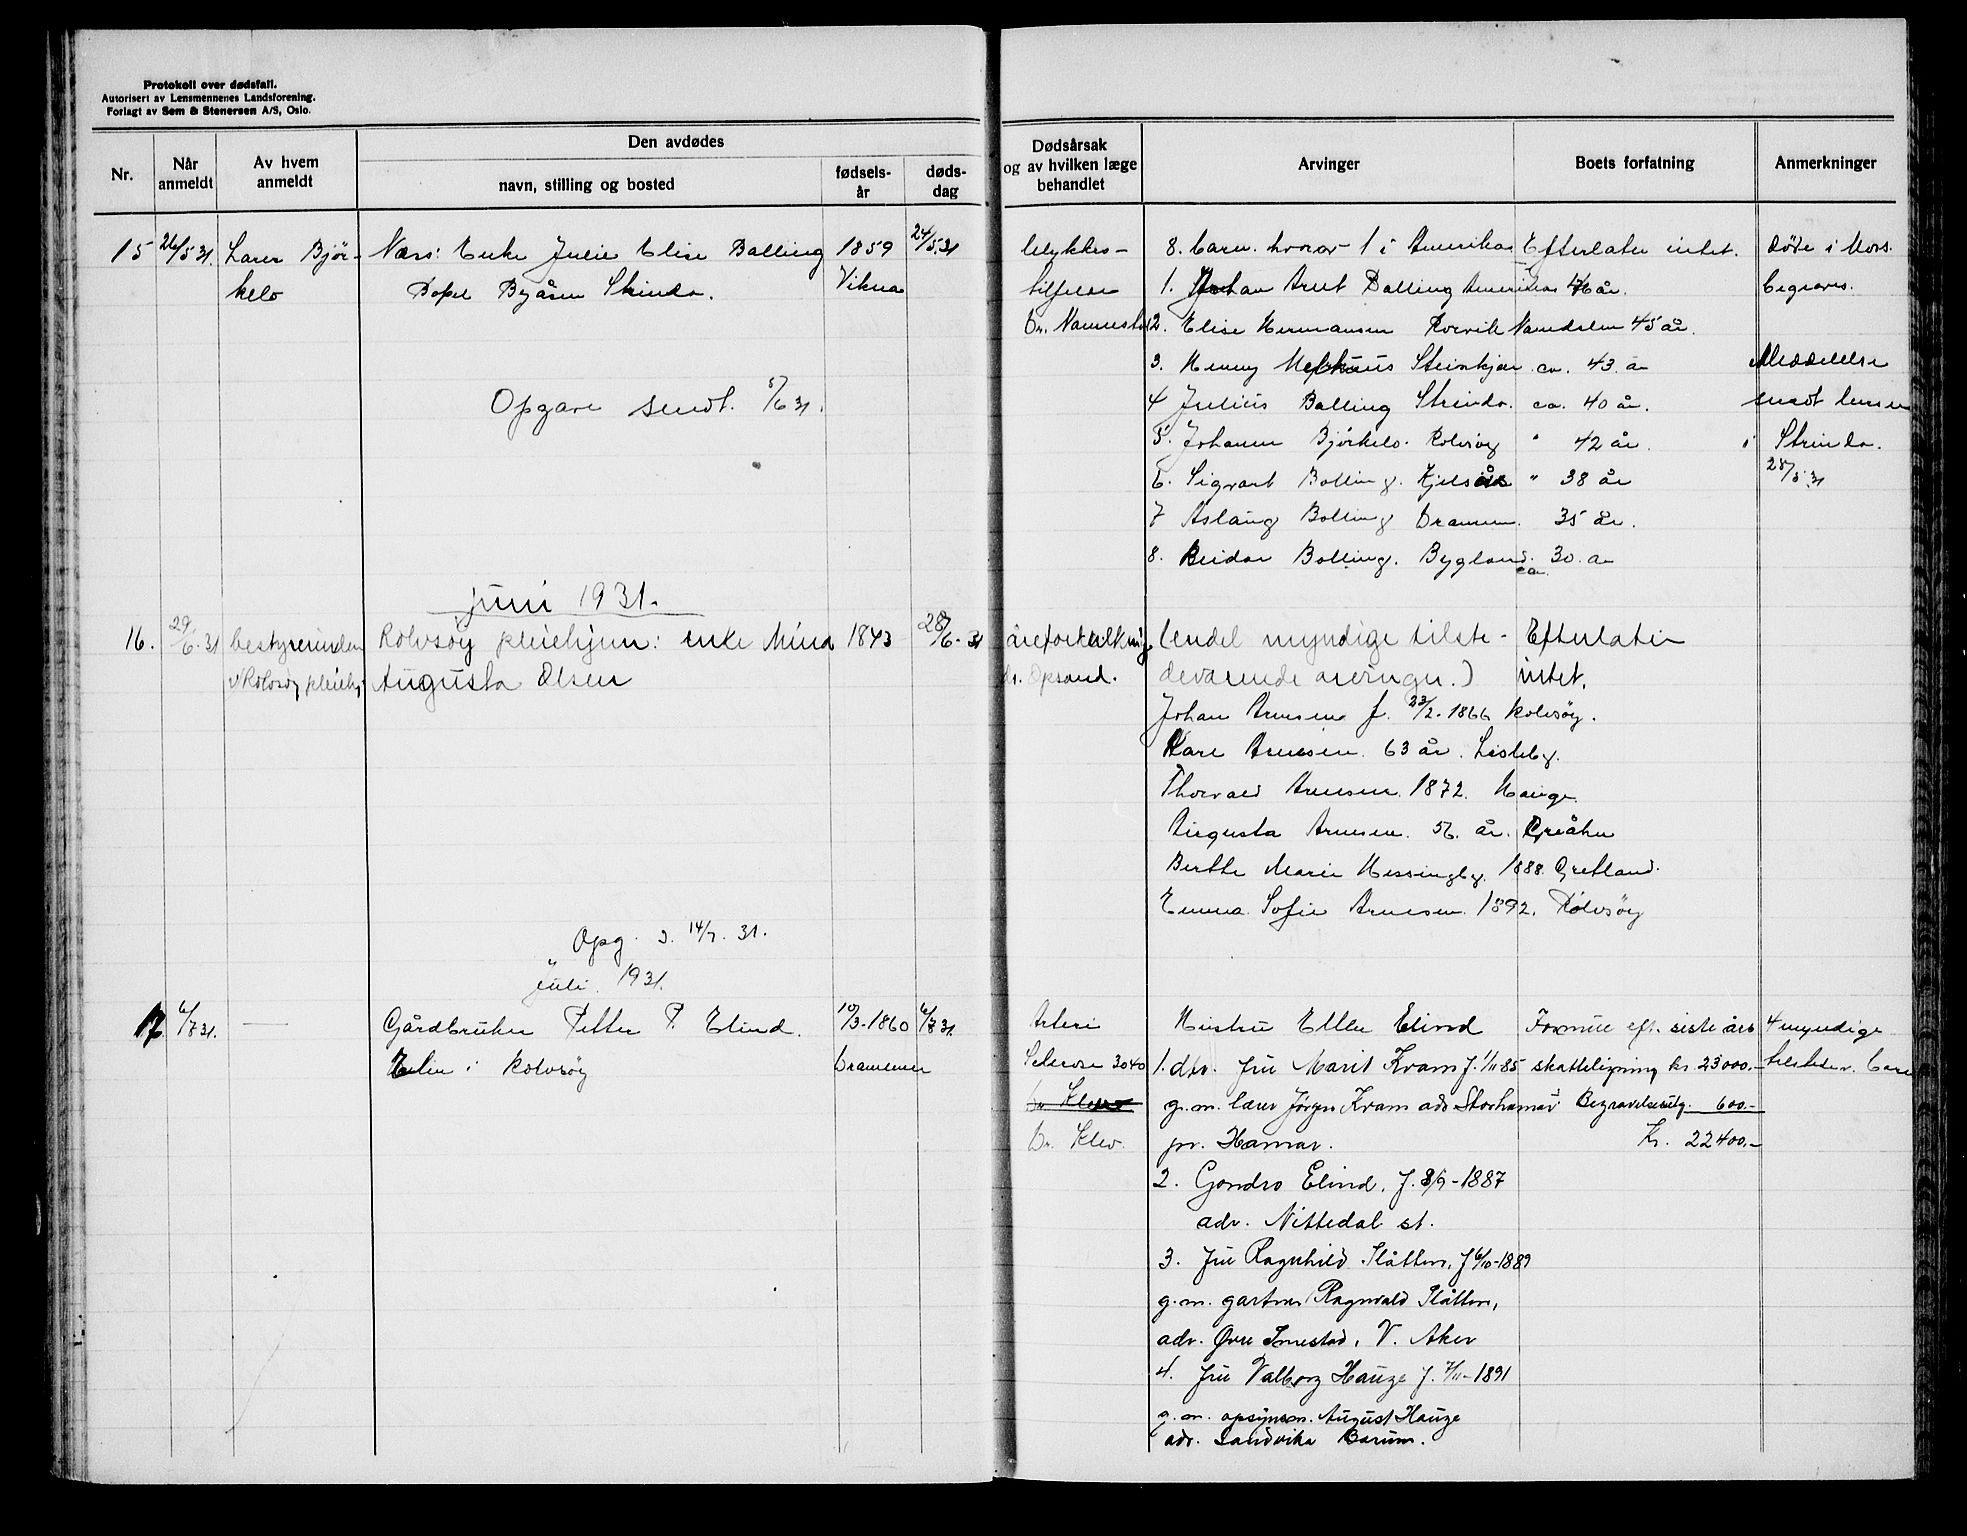 Protokoll over dødsfall.
Autorisert av Lensmennenes Landsforening.
Forlagt av Sem & Stenersen A/S, Oslo.
Nr.
Når anmeldt
Av hvem anmeldt
Den avdødes
navn, stilling og bosted
fødsels-
år
døds-
dag
Dødsårsak
og av hvilken læge
behandlet
Arvinger
Boets forfatning
Anmerkninger
15 26/5 31. Lærer Bjør- Enke Julie Elise Balling 1859 24/5.31
kelo Byåsen Strinda. Vikna
Opgave sendt. 5/6 31.
Ulykkes- 8. barn. hvorav 1 i Amerika Efterlater intet. døde i Moss.
tilfelde 1. Johan Arnt Balling Amerika 46 år. begraves.
Dr. 2. Elise Hermansen Rørvik Namdalen 45 år.
3. Henny Steinkjær ca. 43 år Meddelelse
4 Julius Balling Strinda. ca. 40 år. sendt lensm
5. Johanne Bjørkelo. Rolvsøy " 42 år. i Strinda.
6. Sigvart Balling. Kjelsås " 38 år 28/5.31
7 Aslaug Balling Drammen. 35 år.
8. Reidar Balling. Bygland. ca. 30. år
juni 1931.
16. 29/6.31 bestyrerinden Rolvsøy pleiehjem: enke Mina 1843 28/6.31
v/Rolvsøy pleiehj. Augusta Olsen
åreforkalkning (endel myndige tilste- Efterlater
dr. Opsand. deværende arvinger.) intet.
Johan Arnesen f. 23/2.1866 Rolvsøy.
Kare Arnesen. 63 år. Lisleby.
Thorvald Arnesen. 1872. Hauge.
Augusta Arnesen. 56. år. Gråhn
Berthe Marie Hessingby. 1888. Gretland.
Emma Sofie Arnesen. 1892. Rolvsøy
Opg. s. 14/7. 31.
Juli. 1931.
17. 6/7 31. — Gårdbruker Petter P. Elind. 10/3-1860 6/7 31.
Elin i Rolvsøy Drammen
Arteri Hustru Ellen Elind Formue eft. siste års 4 myndige
Sclerose 3040 1. dtr. fru Marit Kvam f. 1/11 85 skatteligning kr. 23000.- tilstedev. barn
Dr. Klev g.m. lærer Jørgen Kvam adr Storhamar Begravelsesutg. 600.-
Dr. Klev. pr. Hamar. Kr. 22400.-
2. Gondro Elind, f. 8/9-1887
adr. Nittedal st.
3. fru Ragnhild Slåtten, f 6/10-1889
g.m. gartner Ragnvald Slåtten,
adr. Øvre Smestad, V. Aker
4. fru Valborg Hauge f. 7/11-1891
g.m. opsynsm. August Hauge
adr. Sandvika Bærum.